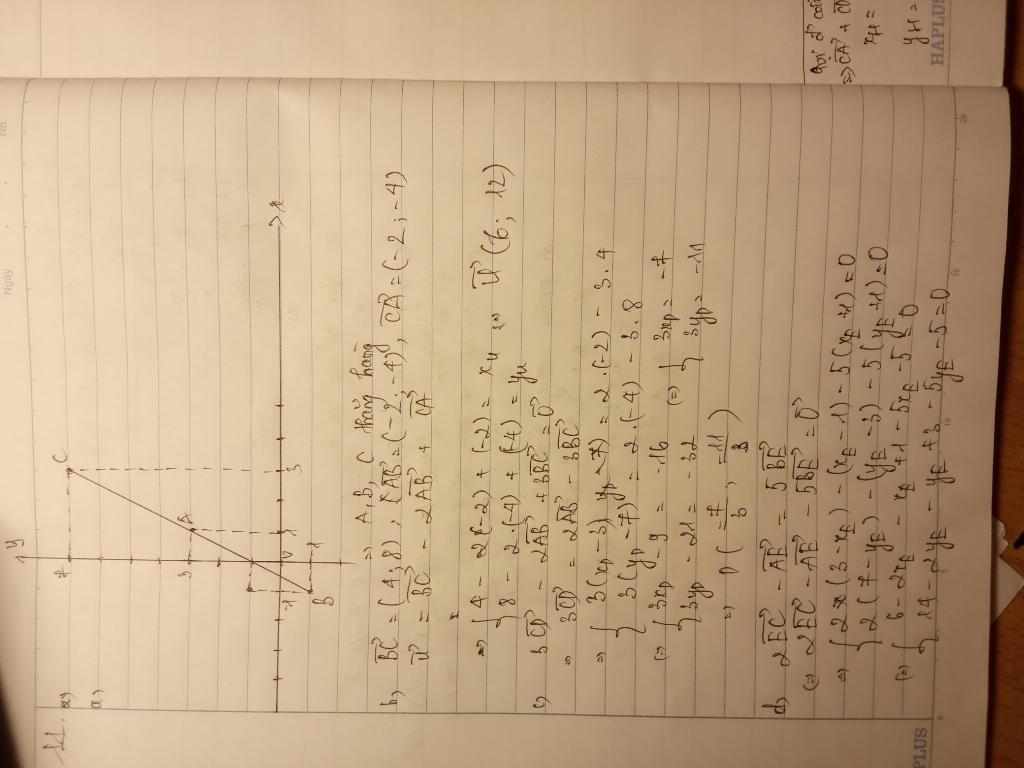 Ngày
No.
11.
a)
y
7
C
3
A
-1
0
1
3
x
-1
B
⇒ A, B, C thẳng hàng
b) BC→ = (4, 8), AB→ = (-2; -4), CA→ = (-2; -4)
u→ = BC→ - 2AB→ + CA→
⇒ { 4 - 2(-2) + (-2) = xu ⇒ u→ (6; 12)
8 - 2.(-4) + (-4) = yu
c) 3CD→ - 2AB→ + 3BC→ = 0→
⇒ 3CD→ = 2AB→ - 3BC→
⇒ { 3(xD - 3) = 2.(-2) - 3.4
3(yD - 7) = 2.(-4) - 3.8
(=) { 3xD - 9 = -16 (=) { 3xD = -7
3yD - 21 = -32 3yD = -11
⇒ D (-7/3, -11/3)
d) 2EC→ - AE→ = 5BE→
(=) 2EC→ - AE→ - 5BE→ = 0→
⇒ { 2(3 - xE) - (xE - 1) - 5(xE + 1) = 0
2(7 - yE) - (yE - 3) - 5(yE + 1) = 0
(=) { 6 - 2xE - xE + 1 - 5xE - 5 = 0
14 - 2yE - yE + 3 - 5yE - 5 = 0
0
5
10
15
20
PLUS
Gọi
⇒ CA→ +
xH =
yH =
HAPLUS